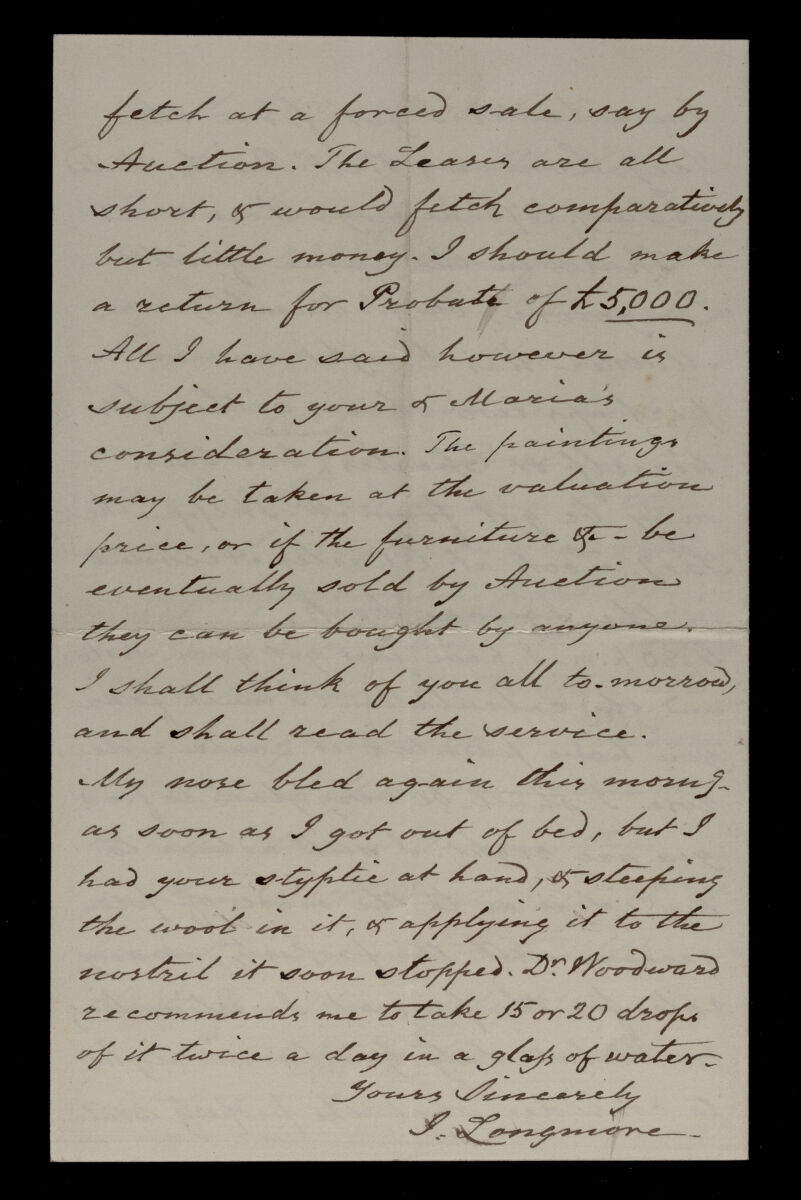 fetch at a forced sale, say by
Auction. The Leases are all
short, & would fetch comparatively
but little money. I should make
a return for Probate of £5,000.
All I have said however is
subject to your & Maria's
consideration. The paintings
may be taken at the valuation
price, or if the furniture &c - be
eventually sold by Auction
they can be bought by anyone.
I shall think of you all to-morrow,
and shall read the service.
My nose bled again this morng-
as soon as I got out of bed, but I
had your styptic at hand, & steeping
the wool in it, & applying it to the
nostril it soon stopped. Dr. Woodward
recommends me to take 15 or 20 drops
of it twice a day in a glass of water-
Yours Sincerely
J. Longmore-